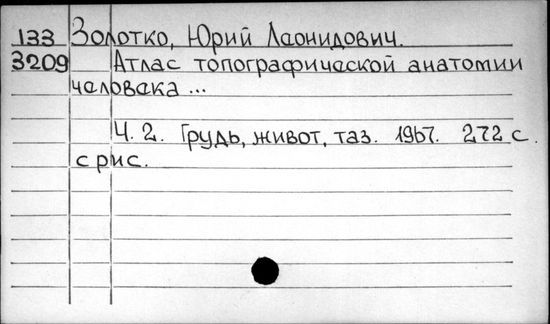 133 Золотко, Юрий Леонидович.
3209 Атлас топографической анатомии
человека ...
Ч. 2. Грудь, живот, таз. 1967. 272 с.
с рис.